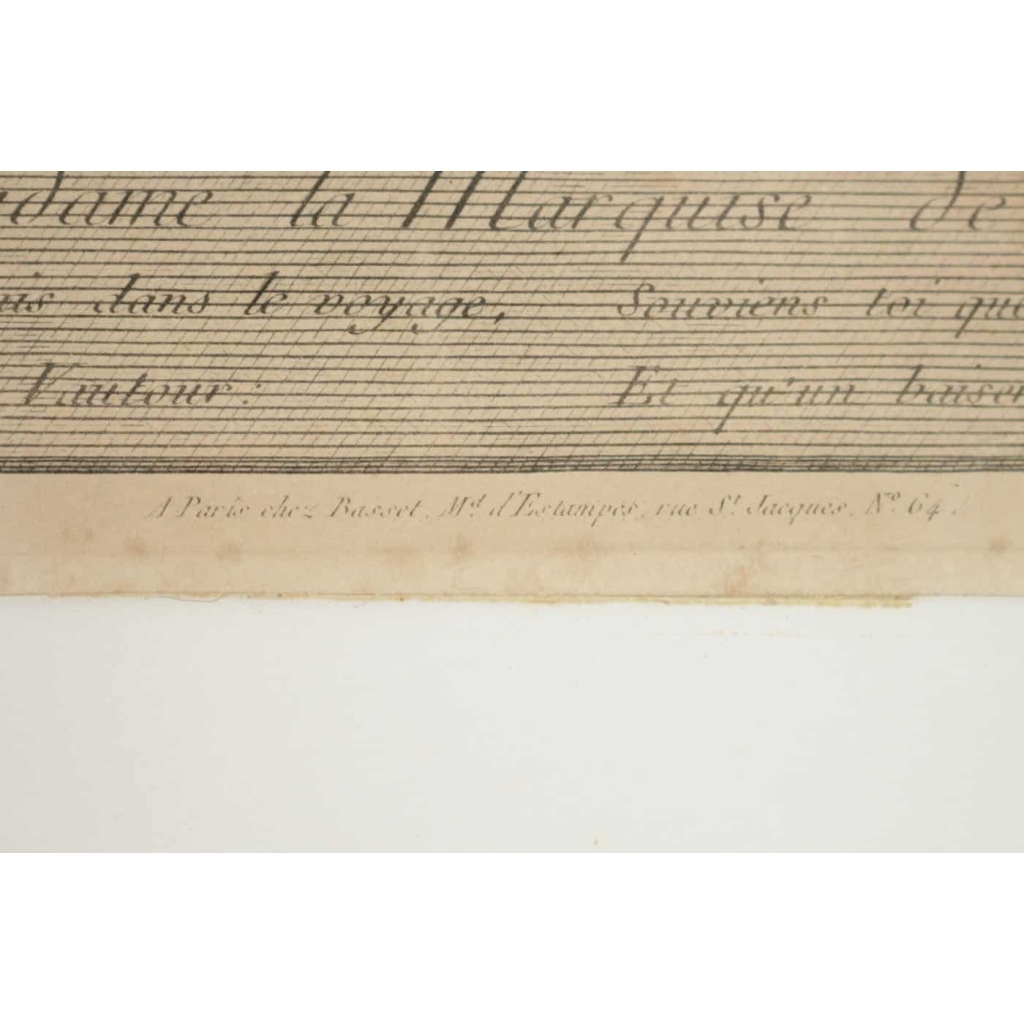 adame la Marquise de
uis dans le voyage, Souviens toi que
Vautour: Et qu'un baiser
A Paris chez Basset, Md. d'Estampes, rue St. Jacques, No. 64.